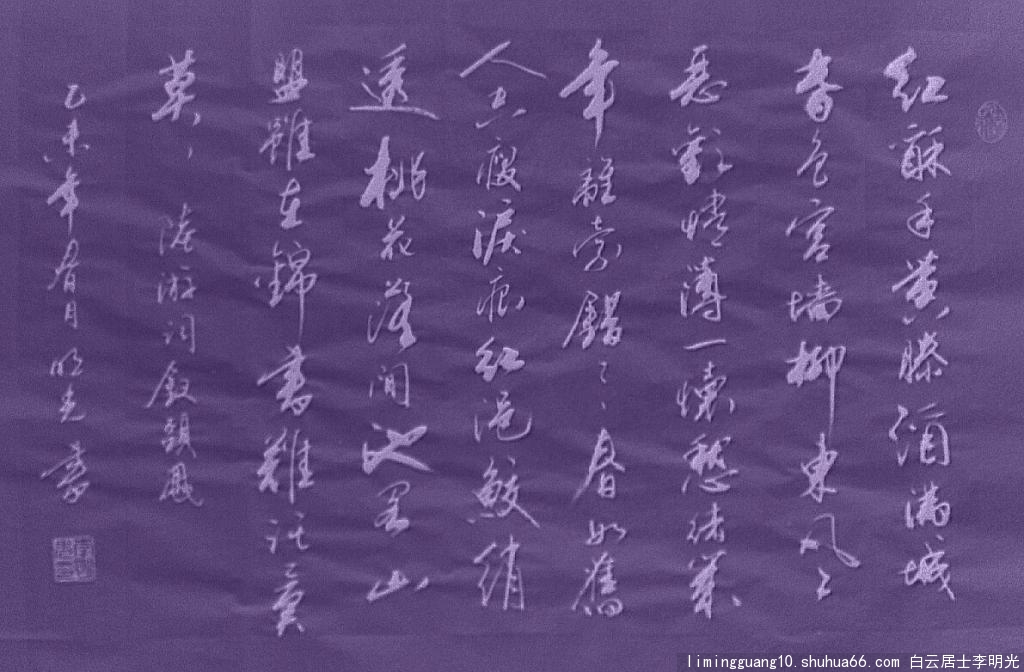 红酥手黄滕酒满城
春色宫墙柳東风々
恶歡情薄一懷愁绪幾
年離索錯々、春如舊
人空瘦淚痕红浥鲛绡
透桃花落闲池阁山
盟雖在錦書難託莫
莫、、陸游词钗頭凤
乙未年春月明光書
limingguang10.shuhua66.com 白云居士李明光